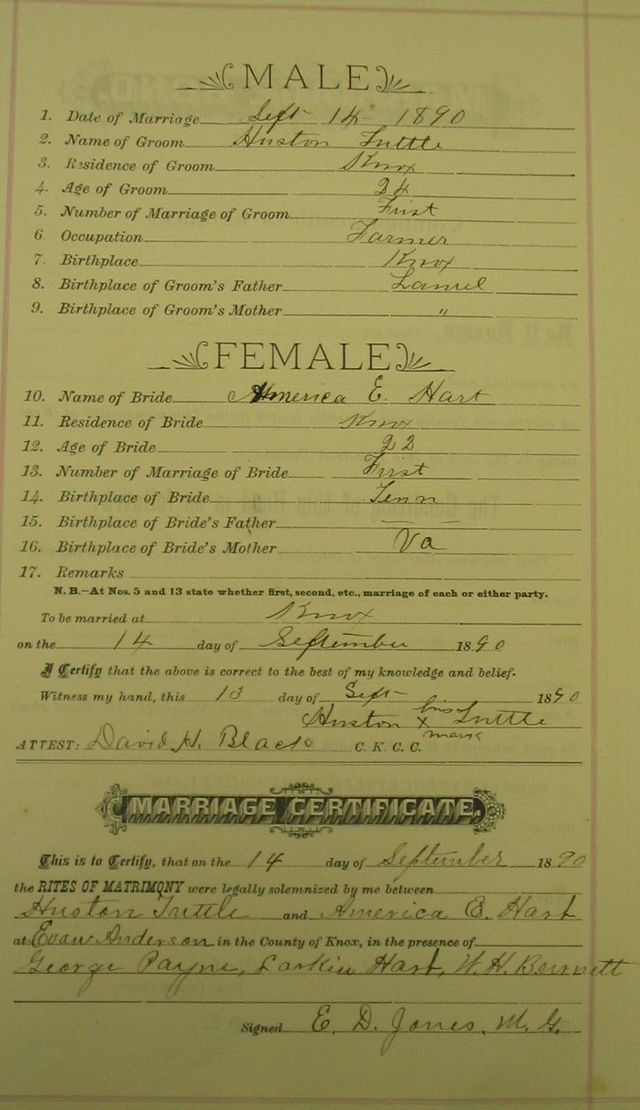 MALE
1. Date of Marriage Sept 14" 1890
2. Name of Groom Huston Tuttle
3. Residence of Groom Knox
4. Age of Groom 24
5. Number of Marriage of Groom First
6. Occupation Farmer
7. Birthplace Knox
8. Birthplace of Groom's Father Laurel
9. Birthplace of Groom's Mother "
FEMALE
10. Name of Bride America E. Hart
11. Residence of Bride Knox
12. Age of Bride 22
13. Number of Marriage of Bride First
14. Birthplace of Bride Tenn
15. Birthplace of Bride's Father — —
16. Birthplace of Bride's Mother Va
17. Remarks
N. B.—At Nos. 5 and 13 state whether first, second, etc., marriage of each or either party.
To be married at Knox
on the 14 day of September 1890
I Certify that the above is correct to the best of my knowledge and belief.
Witness my hand, this 13 day of Sept 1890
Huston his x mark Tuttle
ATTEST: David H. Black C. K. C. C.
MARRIAGE CERTIFICATE.
This is to Certify, that on the 14 day of September 1890
the RITES OF MATRIMONY were legally solemnized by me between
Huston Tuttle and America E. Hart
at Evan Anderson in the County of Knox, in the presence of
George Payne, Larkin Hart, W. H. Bennett
Signed E. D. Jones, M. G.